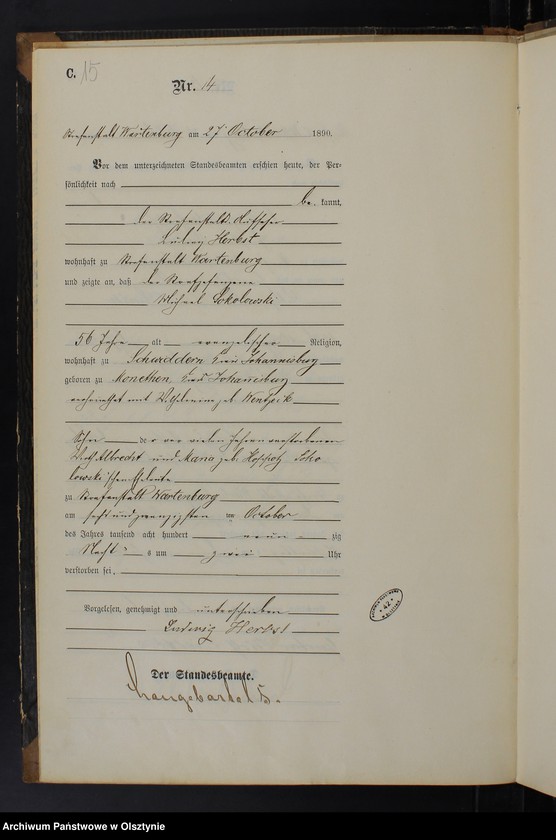 C. 15
Nr. 14
Strafanstalt Wartenburg am 27 October 1890.
Vor dem unterzeichneten Standesbeamten erschien heute, der Per-
sönlichkeit nach
be- kannt,
der Strafanstalts-Aufseher
Ludwig Herbst
wohnhaft zu Strafanstalt Wartenburg
und zeigte an, daß der Strafgefangene
Michael Sokolowski
56 Jahre alt evangelischer Religion,
wohnhaft zu Kreis Johannisburg
geboren zu Monethen, Kreis Johannisburg
verheirathet mit Wilhelmine geb.
Sohn der vor vielen Jahren verstorbenen
Albrecht und Maria geb. Soko
lowski'schen Eheleute
zu Strafanstalt Wartenburg
am sechs und zwanzigsten October
des Jahres tausend acht hundert neun zig
Nacht s um zwei Uhr
verstorben sei.
Vorgelesen, genehmigt und unterschrieben
Ludwig Herbst
Der Standesbeamte.
42
Archiwum Państwowe w Olsztynie